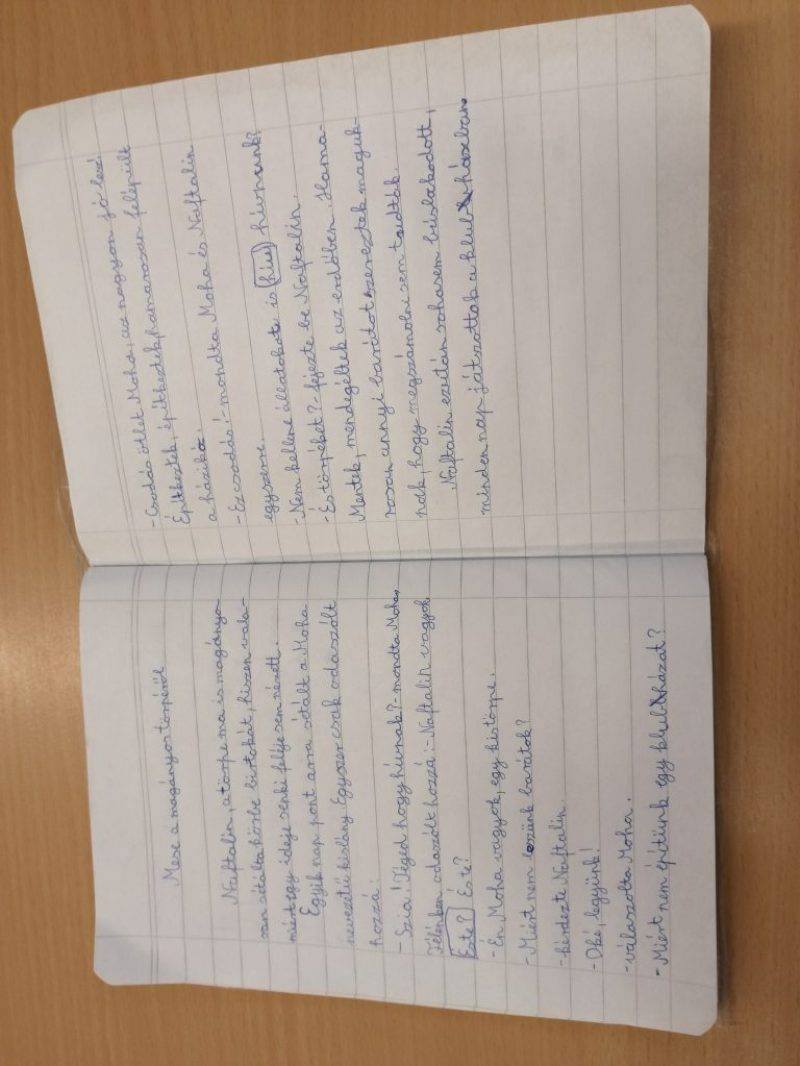 Mese a magányos törpéről
Naftalin, a törpe ma is magányo-
san sétálta körbe birtokát, hiszen vala-
miért egy ideje senki feléje sem nézett.
Egyik nap pont arra sétált a Moha
nevezetű kislány. Egyszer csak odaszólt
hozzá:
- Szia! Téged hogy hívnak? - mondta Moha,
Félénken odaszólt hozzá: - Naftalin vagyok
Este? És te?
- Én Moha vagyok, egy kistörpe.
- Miért nem leszünk barátok?
- kérdezte Naftalin.
- Oké, legyünk!
- válaszolta Moha.
- Miért nem építünk egy klubházat?
- Csodás ötlet Moha, az nagyon jó lesz!
Építkeztek, építkeztek, hamarosan felépült
a házikó.
- Ez csodás! - mondta Moha és Naftalin
egyszerre.
- Nem kellene állatokat is (hívi) hívnunk?
- És törpéket? - fejezte be Naftalin.
Mentek, mendegéltek az erdőben. Hama-
rosan annyi barátot szereztek maguk-
nak, hogy megszámolni sem tudták.
Naftalin ezután sohasem búslakodott,
minden nap játszottak a klubházban.